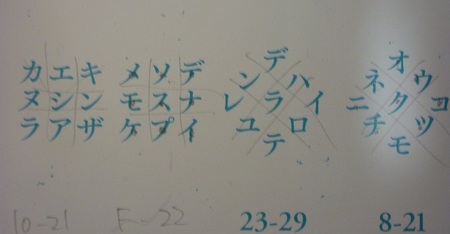 カエキ
ヌシン
ラアザ
10-21
メソデ
モスナ
ケプイ
F-22
デ
ン ハ
レ ラ イ
ユ ロ
テ
23-29
オ
ネ ウ
ニ タ コ
チ ツ
モ
8-21